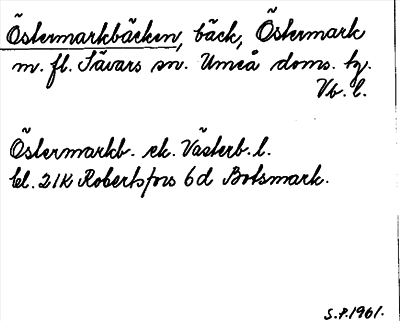 Östermarkbäcken, bäck, Östermark
m. fl. Sävars sn. Umeå doms. hg.
Vb. l.
Östermarkb. ek. Västerb. l.
bl. 21K Robertsfors 6d Botsmark.
S.P. 1961.